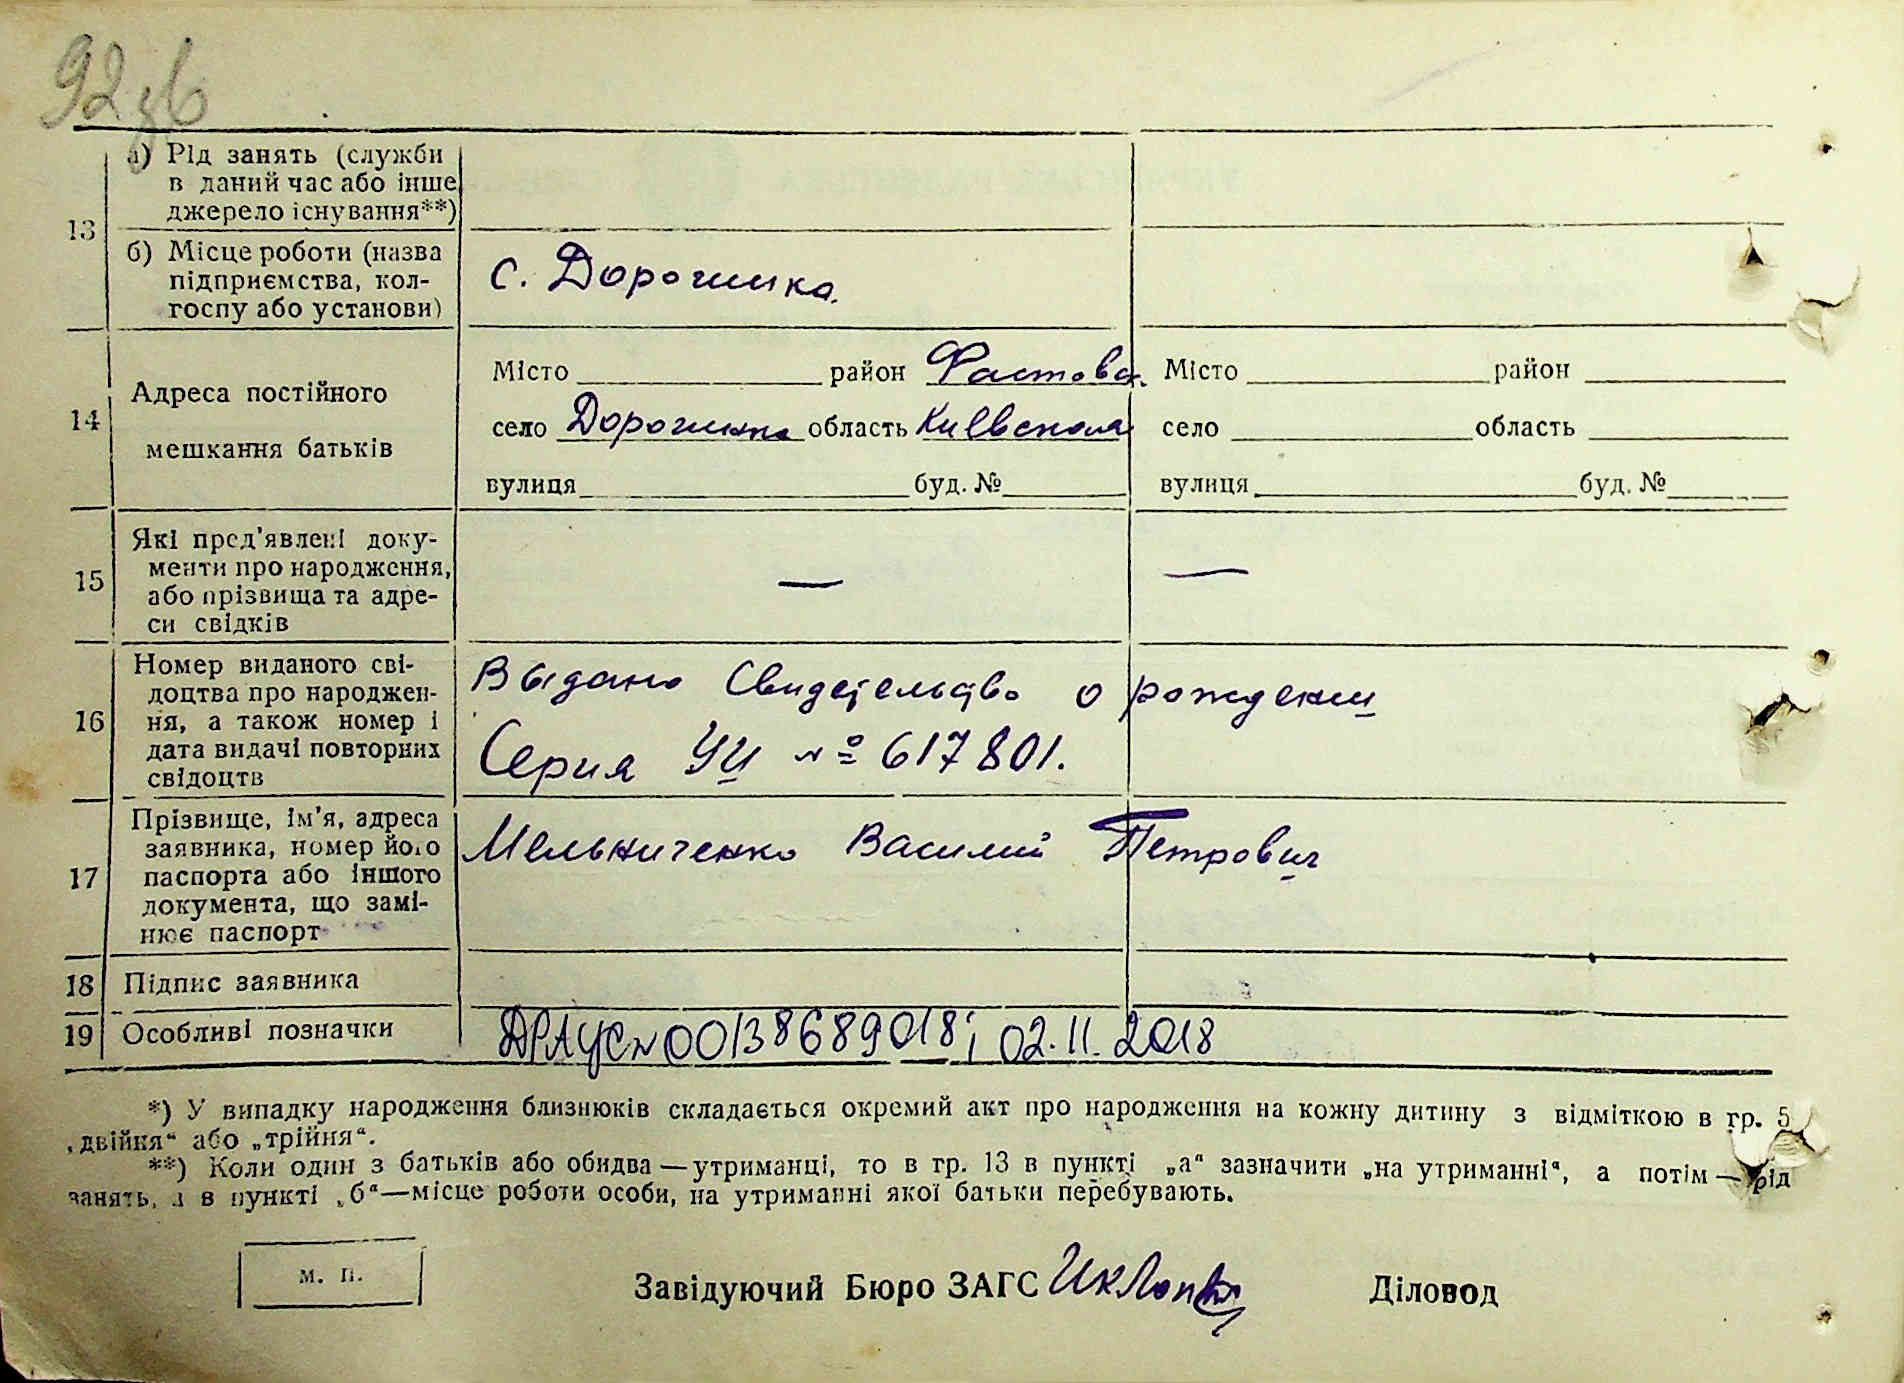 92 зв
13
а) Рід занять (служби
в даний час або інше
джерело існування**)
б) Місце роботи (назва
підприємства, кол-
госпу або установи)
с. Дорогинка.
14
Адреса постійного
мешкання батьків
Місто район Фастовск.
село Дорогинка область Киевская
вулиця буд. №
Місто район
село область
вулиця буд. №
15
Які пред'явлені доку-
менти про народження,
або прізвища та адре-
си свідків
— —
16
Номер виданого сві-
доцтва про народжен-
ня, а також номер і
дата видачі повторних
свідоцтв
Выдано Свидетельство о рождении
Серия УИ № 617801.
17
Прізвище, ім'я, адреса
заявника, номер його
паспорта або іншого
документа, що замі-
нює паспорт
Мельниченко Василий Петрович
18 Підпис заявника
19 Особливі позначки
ДРАЦС № 00138689018; 02.11.2018
*) У випадку народження близнюків складається окремий акт про народження на кожну дитину з відміткою в гр. 5
„двійня“ або „трійня“.
**) Коли один з батьків або обидва — утриманці, то в гр. 13 в пункті „а“ зазначити „на утриманні“, а потім — рід
занять, а в пункті „б“ — місце роботи особи, на утриманні якої батьки перебувають.
М. П.
Завідуючий Бюро ЗАГС
Діловод